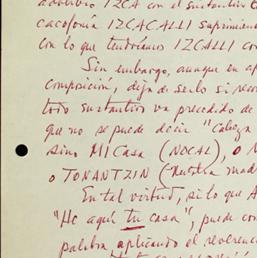 adverbio IZCA con el sustantivo C
cacofonía IZCACALLI suprimiend
con lo que tendríamos IZCALLI co
Sin embargo, aunque en ap
composición, deja de serlo si reco
todo sustantivo va precedido de
que no se puede decir "Cabeza
sino MI Casa (NOCAL), o N
o TONANTZIN ("Nuestra mad
En tal virtud, si lo que A
"He aquí tu casa", puede com
palabra aplicando el reverenc